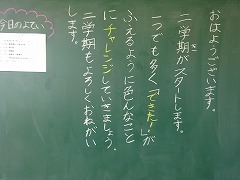 おはようございます。
二学期がスタートします。
一つでも多く「できた!」が
ふえるように色んなこと
にチャレンジしていきましょう。
二学期もよろしくおねがい
します。
今日のよてい